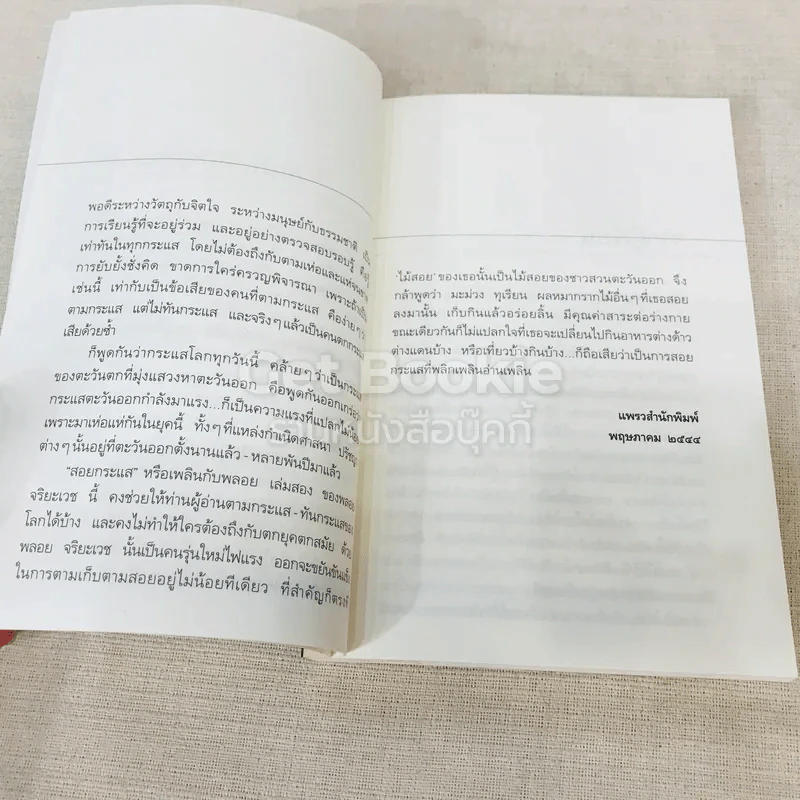 พอดีระหว่างวัตถุกับจิตใจ ระหว่างมนุษย์กับธรรมชาติ เป็น
การเรียนรู้ที่จะอยู่ร่วม และอยู่อย่างตรวจสอบรอบรู้
เท่าทันในทุกกระแส โดยไม่ต้องถึงกับตามเห่อและแห่จน
การยับยั้งชั่งคิด ขาดการใคร่ครวญพิจารณา เพราะถ้าเป็น
เช่นนี้ เท่ากับเป็นข้อเสียของคนที่ตามกระแส คือง่ายๆ ว่า
ตามกระแส แต่ไม่ทันกระแส และจริงๆ แล้วเป็นคนตกกระแส
เสียด้วยซ้ำ
ก็พูดกันว่ากระแสโลกทุกวันนี้ คล้ายๆ ว่าเป็นกระแส
ของตะวันตกที่มุ่งแสวงหาตะวันออก คือพูดกันออกเกร่อว่า
กระแสตะวันออกกำลังมาแรง...ก็เป็นความแรงที่แปลกไม่น้อย
เพราะมาเห่อแห่กันในยุคนี้ ทั้งๆ ที่แหล่งกำเนิดศาสนา ปรัชญา
ต่างๆ นั้นอยู่ที่ตะวันออกตั้งนานแล้ว - หลายพันปีมาแล้ว
“สอยกระแส” หรือเพลินกับพลอย เล่มสอง ของพลอย
จริยะเวช นี้ คงช่วยให้ท่านผู้อ่านตามกระแส - ทันกระแสของ
โลกได้บ้าง และคงไม่ทำให้ใครต้องถึงกับตกยุคตกสมัย ด้วย
พลอย จริยะเวช นั้นเป็นคนรุ่นใหม่ไฟแรง ออกจะขยันขันแข็ง
ในการตามเก็บตามสอยอยู่ไม่น้อยทีเดียว ที่สำคัญก็ตรงที่
‘ไม้สอย’ ของเธอนั้นเป็นไม้สอยของชาวสวนตะวันออก จึง
กล้าพูดว่า มะม่วง ทุเรียน ผลหมากรากไม้อื่นๆ ที่เธอสอย
ลงมานั้น เก็บกินแล้วอร่อยลิ้น มีคุณค่าสาระต่อร่างกาย
ขณะเดียวกันก็ไม่แปลกใจที่เธอจะเปลี่ยนไปกินอาหารต่างด้าว
ต่างแดนบ้าง หรือเที่ยวบ้างกินบ้าง...ก็ถือเสียว่าเป็นการสอย
กระแสที่พลิกเพลินอ่านเพลิน
แพรวสำนักพิมพ์
พฤษภาคม ๒๕๔๔
Get Bookie
ร้านหนังสือบุ๊คกี้